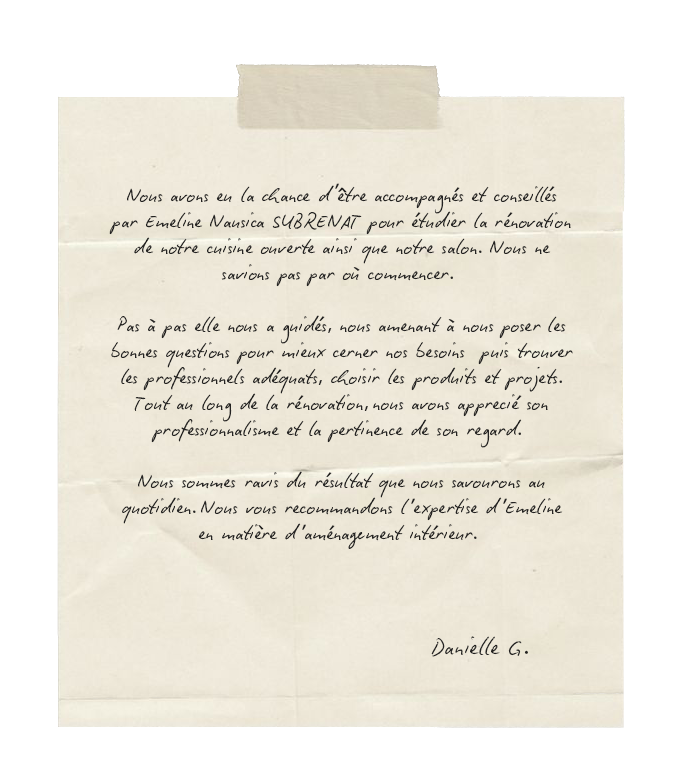 Nous avons eu la chance d'être accompagnés et conseillés
par Emeline Nausica SUBRENAT pour étudier la rénovation
de notre cuisine ouverte ainsi que notre salon. Nous ne
savions pas par où commencer.
Pas à pas elle nous a guidés, nous amenant à nous poser les
bonnes questions pour mieux cerner nos besoins puis trouver
les professionnels adéquats, choisir les produits et projets.
Tout au long de la rénovation, nous avons apprecié son
professionnalisme et la pertinence de son regard.
Nous sommes ravis du résultat que nous savourons au
quotidien. Nous vous recommandons l'expertise d'Emeline
en matière d'aménagement intérieur.
Danielle G.